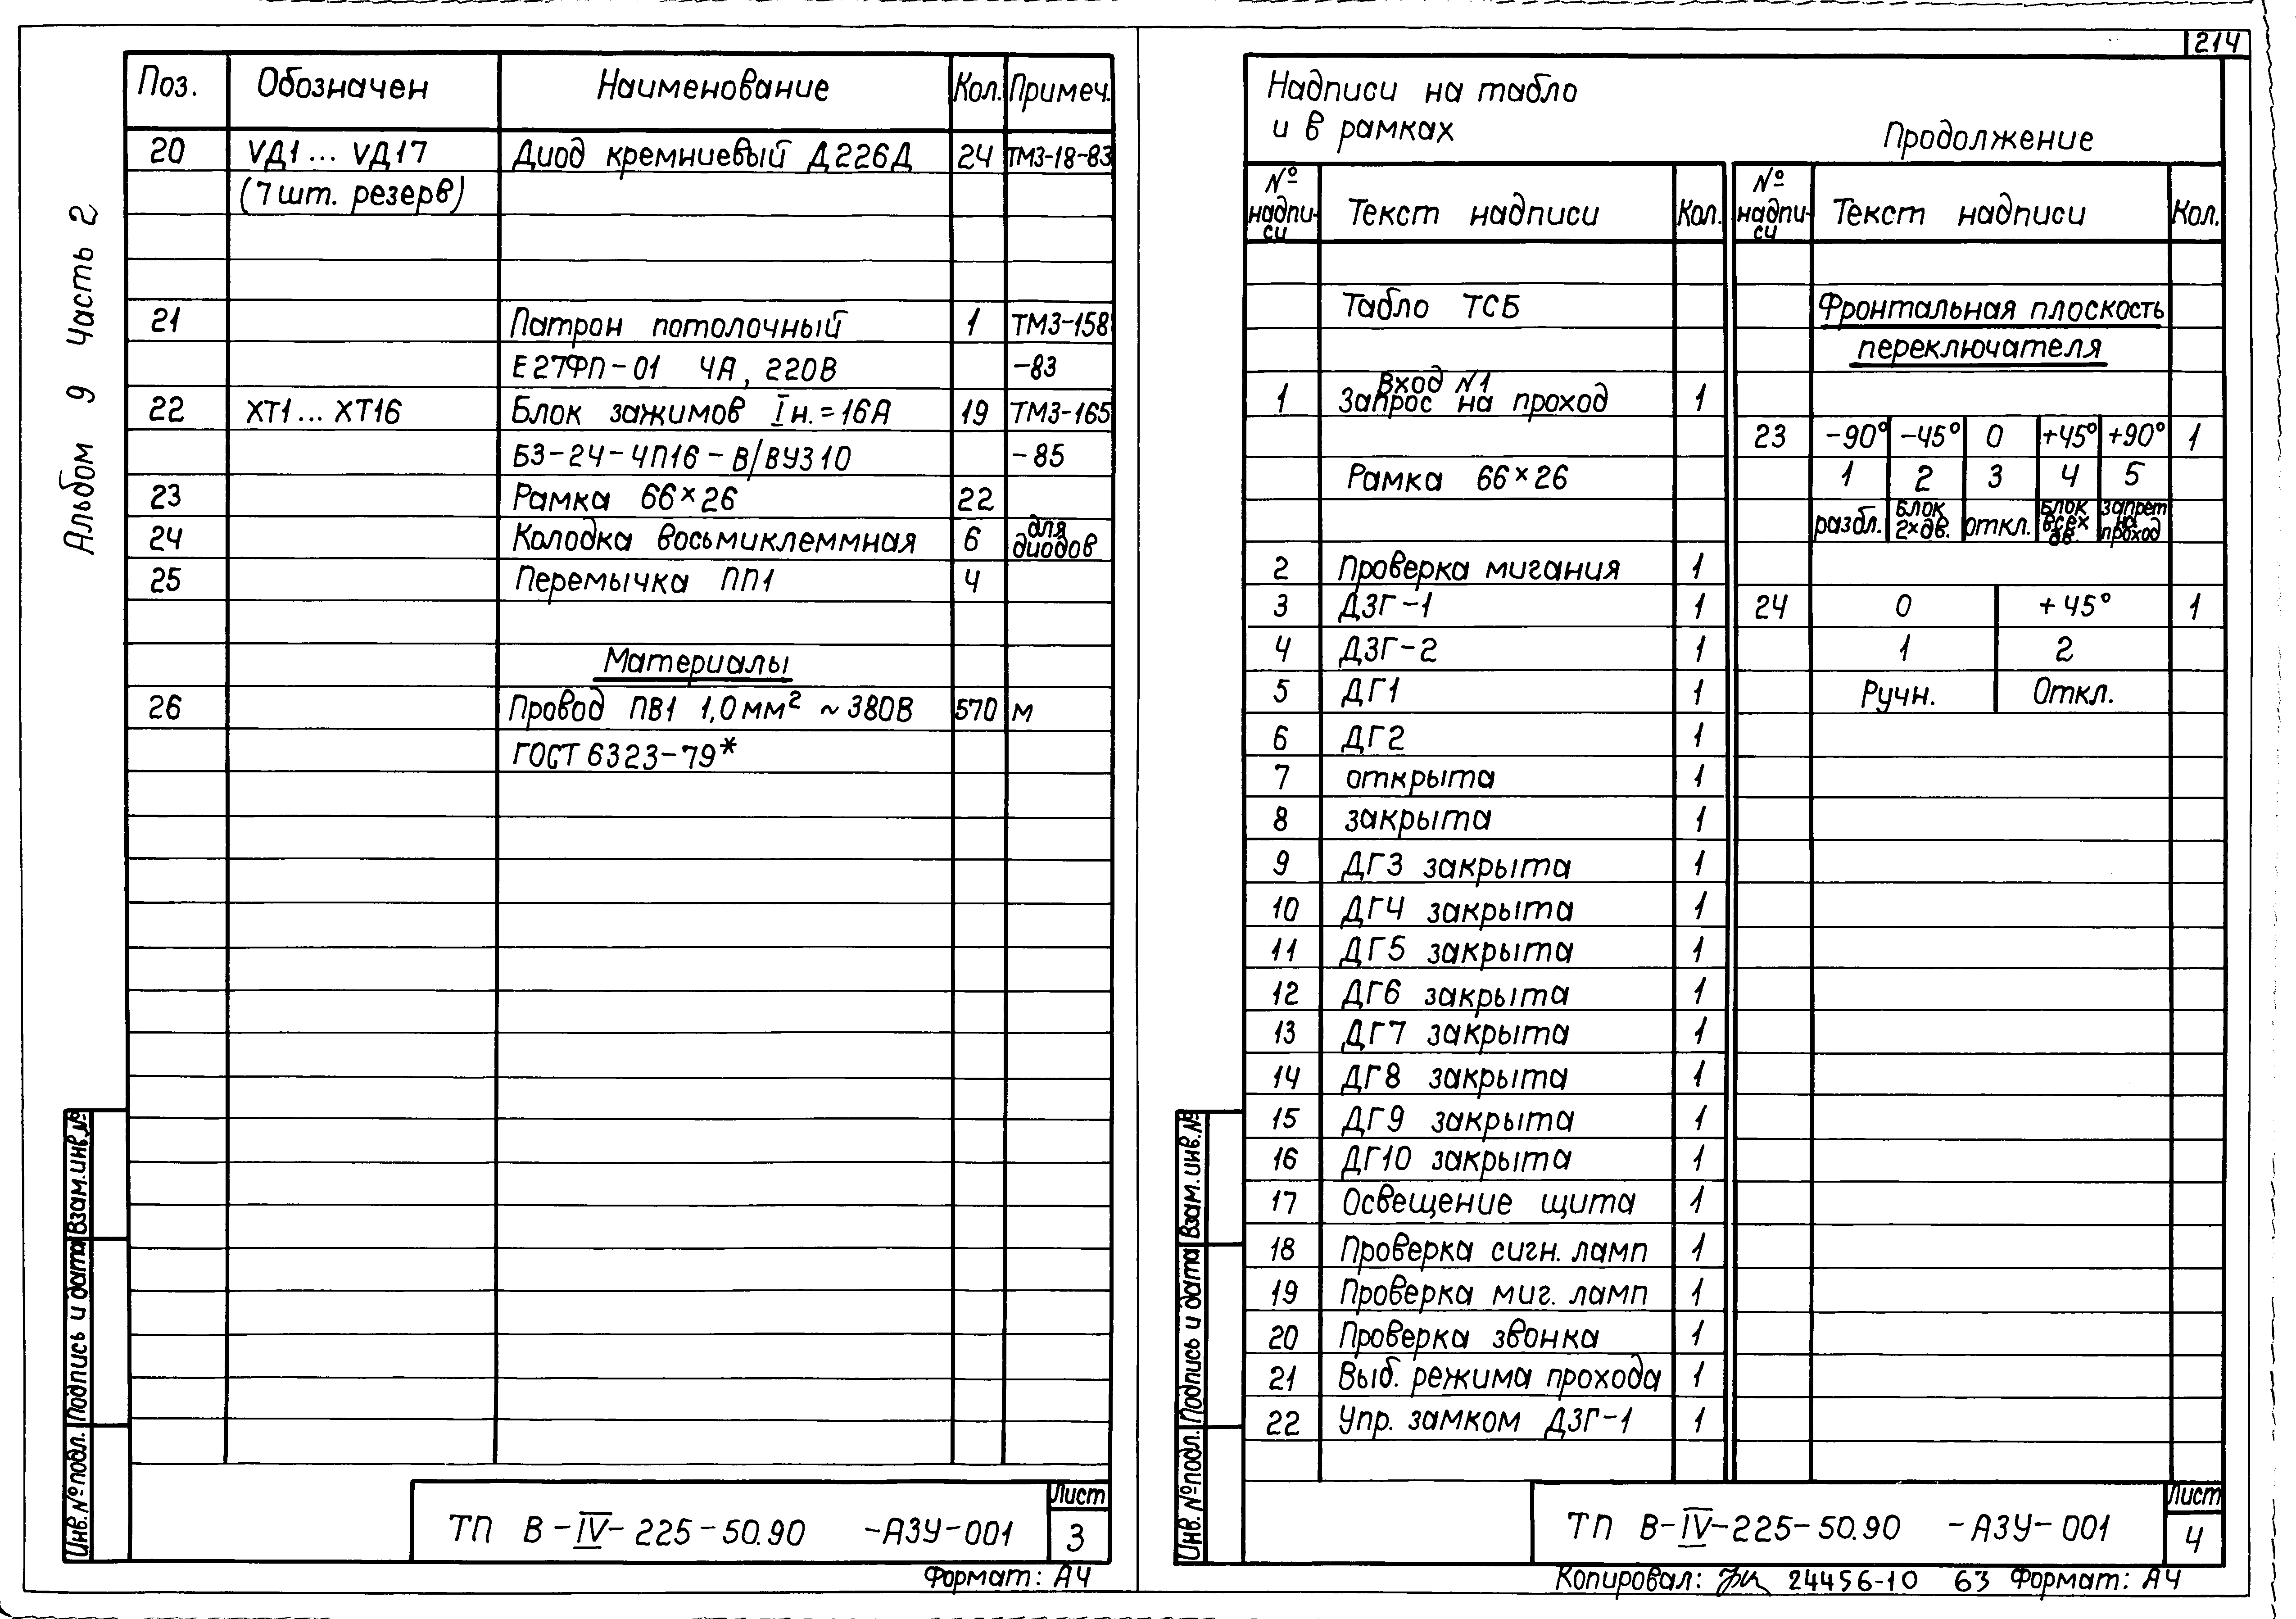 Альбом 9 Часть 2
Поз. Обозначен Наименование Кол. Примеч.
20 VД1 ... VД17 Диод кремниевый Д226Д 24 ТМ3-18-83
(7 шт. резерв)
21 Патрон потолочный 1 ТМ3-158
Е27ФП-01 4А, 220В -83
22 ХТ1 ... ХТ16 Блок зажимов Iн.=16А 19 ТМ3-165
БЗ-24-4П16-В/ВУ3 10 -85
23 Рамка 66×26 22
24 Колодка восьмиклеммная 6 для диодов
25 Перемычка ПП1 4
Материалы
26 Провод ПВ1 1,0 мм² ~380В 570 м
ГОСТ 6323-79*
Взам.инв.№
Подпись и дата
Инв.№подл.
ТП В-IV-225-50.90 -АЗУ-001
Лист
3
Формат: А4
214
Надписи на табло
и в рамках
Продолжение
№ надписи Текст надписи Кол.
Табло ТСБ
Вход №1
1 Запрос на проход 1
Рамка 66×26
2 Проверка мигания 1
3 ДЗГ-1 1
4 ДЗГ-2 1
5 ДГ1 1
6 ДГ2 1
7 открыта 1
8 закрыта 1
9 ДГ3 закрыта 1
10 ДГ4 закрыта 1
11 ДГ5 закрыта 1
12 ДГ6 закрыта 1
13 ДГ7 закрыта 1
14 ДГ8 закрыта 1
15 ДГ9 закрыта 1
16 ДГ10 закрыта 1
17 Освещение щита 1
18 Проверка сигн. ламп 1
19 Проверка миг. ламп 1
20 Проверка звонка 1
21 Выб. режима прохода 1
22 Упр. замком ДЗГ-1 1
№ надписи Текст надписи Кол.
Фронтальная плоскость
переключателя
23 -90° -45° 0 +45° +90° 1
1 2 3 4 5
разбл. блок 2х дв. откл. блок всех дв. запрет на проход
24 0 +45° 1
1 2
Ручн. Откл.
Взам.инв.№
Подпись и дата
Инв.№подл.
ТП В-IV-225-50.90 -АЗУ-001
Лист
4
Копировал: 24456-10 63 Формат: А4